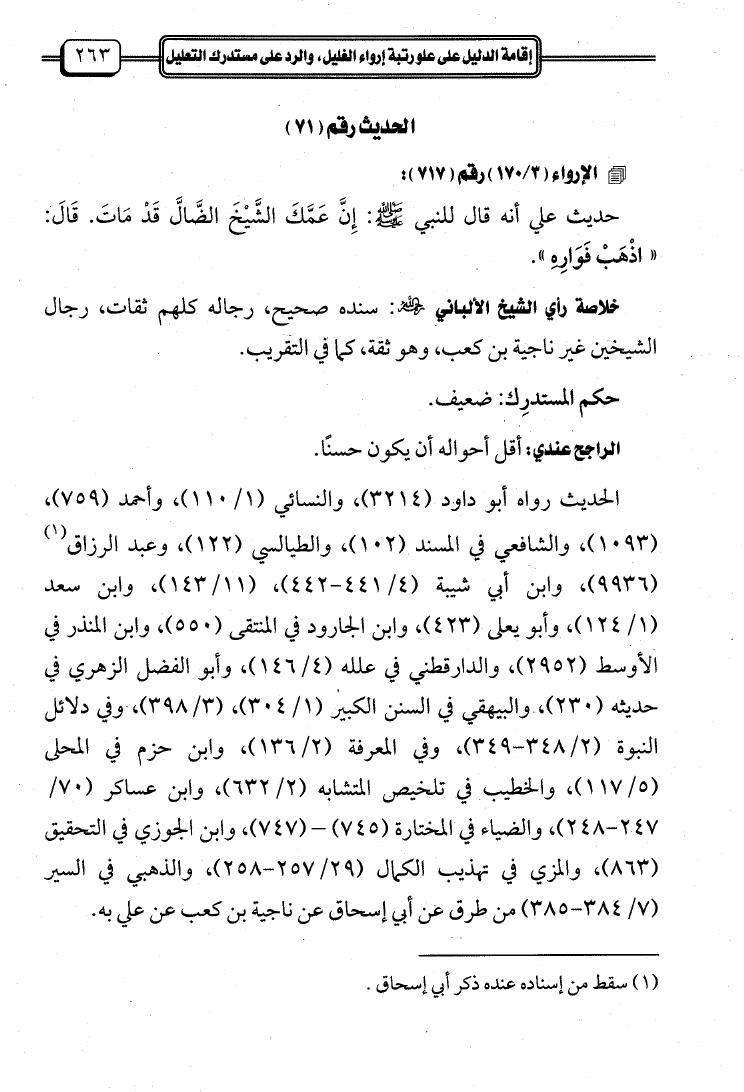 إقامة الدليل على علو رتبة إرواء الغليل، والرد على مستدرك التعليل
٢٦٣
الحديث رقم (٧١)
الإرواء (٣/ ١٧٠) رقم (٧١٧):
حديث علي أنه قال للنبي ﷺ: إِنَّ عَمَّكَ الشَّيْخَ الضَّالَّ قَدْ مَاتَ. قَالَ:
« اذْهَبْ فَوَارِهِ ».
خلاصة رأي الشيخ الألباني رحمه الله: سنده صحيح، رجاله كلهم ثقات، رجال
الشيخين غير ناجية بن كعب، وهو ثقة، كما في التقريب.
حكم المستدرِك: ضعيف.
الراجح عندي: أقل أحواله أن يكون حسنًا.
الحديث رواه أبو داود (٣٢١٤)، والنسائي (١/ ١١٠)، وأحمد (٧٥٩)،
(١٠٩٣)، والشافعي في المسند (١٠٢)، والطيالسي (١٢٢)، وعبد الرزاق(١)
(٩٩٣٦)، وابن أبي شيبة (٤/ ٤٤١-٤٤٢)، (١١/ ١٤٣)، وابن سعد
(١/ ١٢٤)، وأبو يعلى (٤٢٣)، وابن الجارود في المنتقى (٥٥٠)، وابن المنذر في
الأوسط (٢٩٥٢)، والدارقطني في علله (٤/ ١٤٦)، وأبو الفضل الزهري في
حديثه (٢٣٠)، والبيهقي في السنن الكبير (١/ ٣٠٤)، (٣/ ٣٩٨)، وفي دلائل
النبوة (٢/ ٣٤٨-٣٤٩)، وفي المعرفة (٢/ ١٣٦)، وابن حزم في المحلى
(٥/ ١١٧)، والخطيب في تلخيص المتشابه (٢/ ٦٣٢)، وابن عساكر (٧٠/
٢٤٧-٢٤٨)، والضياء في المختارة (٧٤٥) – (٧٤٧)، وابن الجوزي في التحقيق
(٨٦٣)، والمزي في تهذيب الكمال (٢٩/ ٢٥٧-٢٥٨)، والذهبي في السير
(٧/ ٣٨٤-٣٨٥) من طرق عن أبي إسحاق عن ناجية بن كعب عن علي به.
(١) سقط من إسناده عنده ذكر أبي إسحاق .